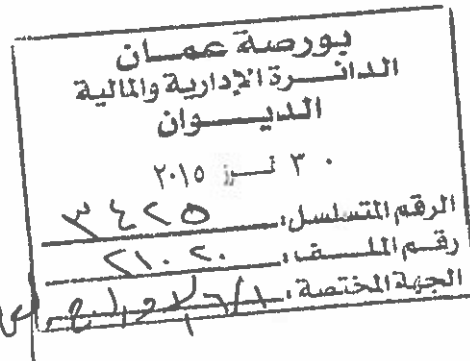 بورصة عمان
الدائرة الإدارية والمالية
الديوان
٣٠ تموز ٢٠١٥
الرقم المتسلسل: ٣٤٢٥
رقم الملف: ٢١٠٢٠
الجهة المختصة: